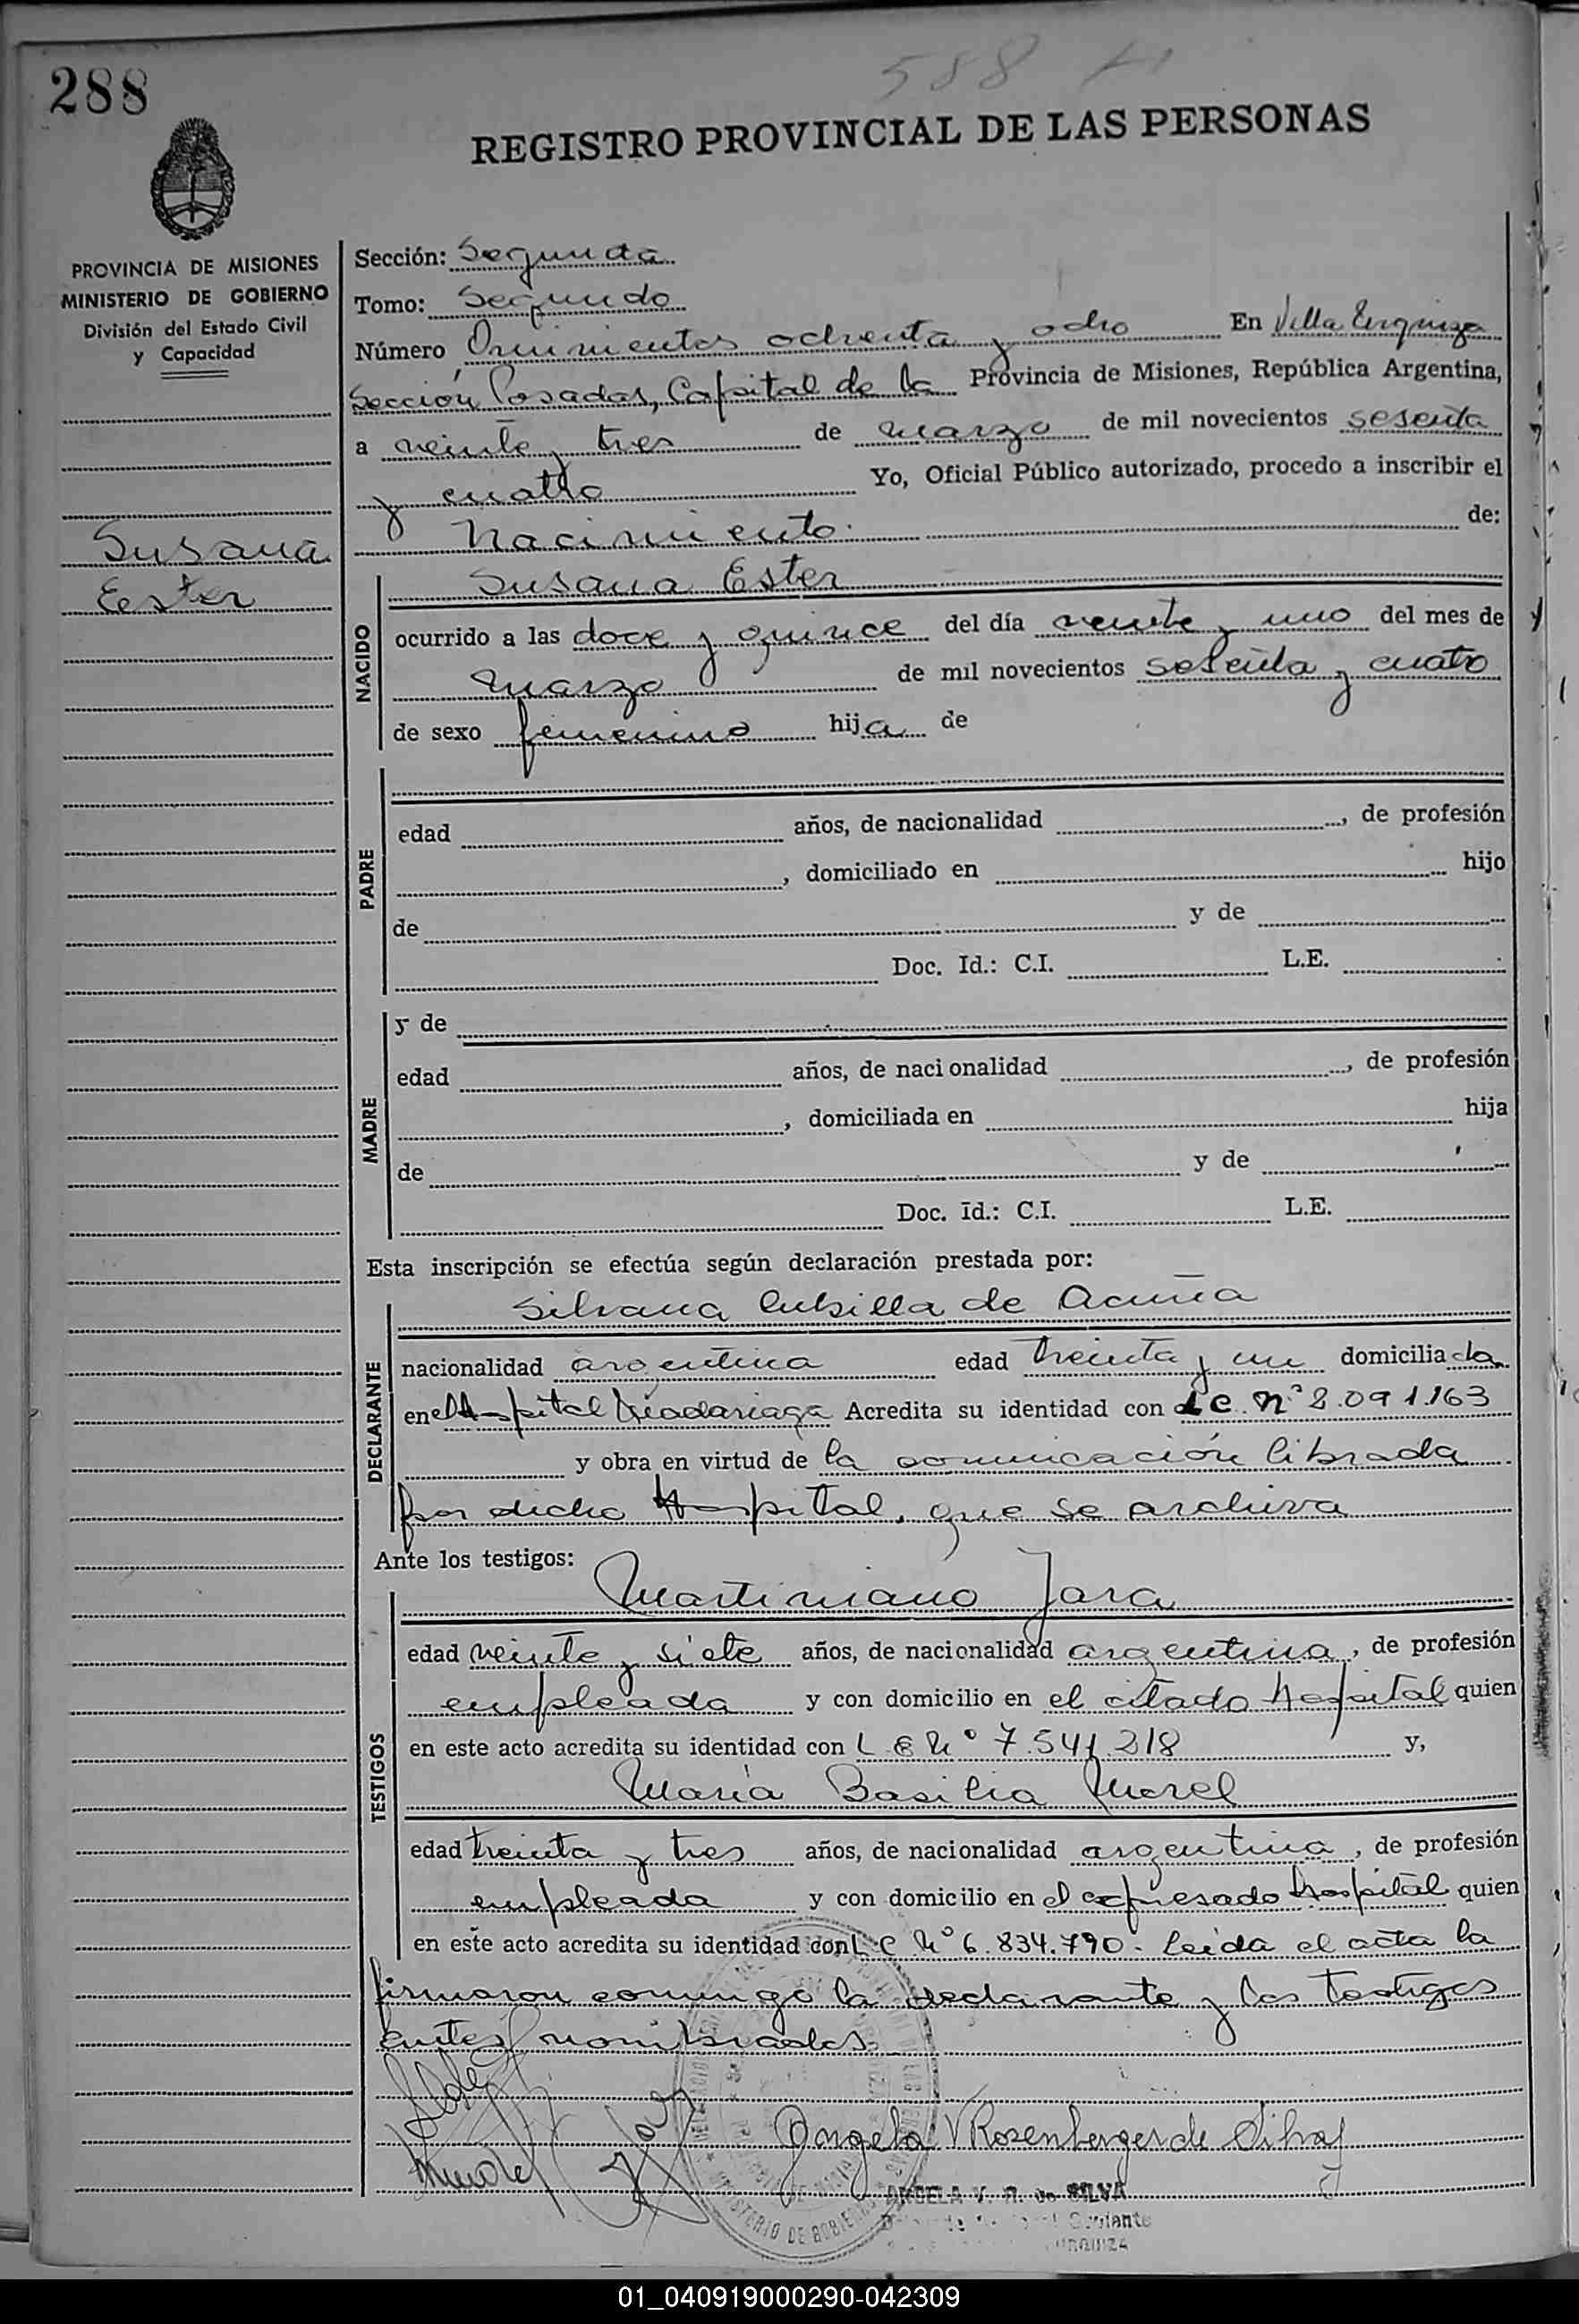 288
588
REGISTRO PROVINCIAL DE LAS PERSONAS
PROVINCIA DE MISIONES
MINISTERIO DE GOBIERNO
División del Estado Civil
y Capacidad
Susana
Ester
Sección: Segunda
Tomo: Segundo
Número Quinientos ochenta y ocho En Villa Urquiza
Sección Posadas, Capital de la Provincia de Misiones, República Argentina,
a veinte y tres de marzo de mil novecientos sesenta
y cuatro Yo, Oficial Público autorizado, procedo a inscribir el
Nacimiento de:
NACIDO
Susana Ester
ocurrido a las doce y quince del día veinte y uno del mes de
marzo de mil novecientos sesenta y cuatro
de sexo femenino hija de
PADRE
edad años, de nacionalidad , de profesión
, domiciliado en hijo
de y de
Doc. Id.: C.I. L.E.
MADRE
y de
edad años, de nacionalidad , de profesión
, domiciliada en hija
de y de
Doc. Id.: C.I. L.E.
Esta inscripción se efectúa según declaración prestada por:
DECLARANTE
Silvana Cubilla de Acuña
nacionalidad argentina edad treinta y un domiciliada
en el Hospital Madariaga Acredita su identidad con L C Nº 2.091.163
y obra en virtud de la comunicación librada
por dicho Hospital, que se archiva
Ante los testigos:
TESTIGOS
Martiniano Jara
edad veinte y siete años, de nacionalidad argentina, de profesión
empleada y con domicilio en el citado Hospital quien
en este acto acredita su identidad con L E Nº 7.541.218 y,
María Basilia Morel
edad treinta y tres años, de nacionalidad argentina, de profesión
empleada y con domicilio en el expresado Hospital quien
en este acto acredita su identidad con L C Nº 6.834.790. Leída el acta la
firmaron conmigo la declarante y los testigos
antes nombrados.
Angela V Rosenberger de Silva
ANGELA V. R. de SILVA
URQUIZA
01_040919000290-042309